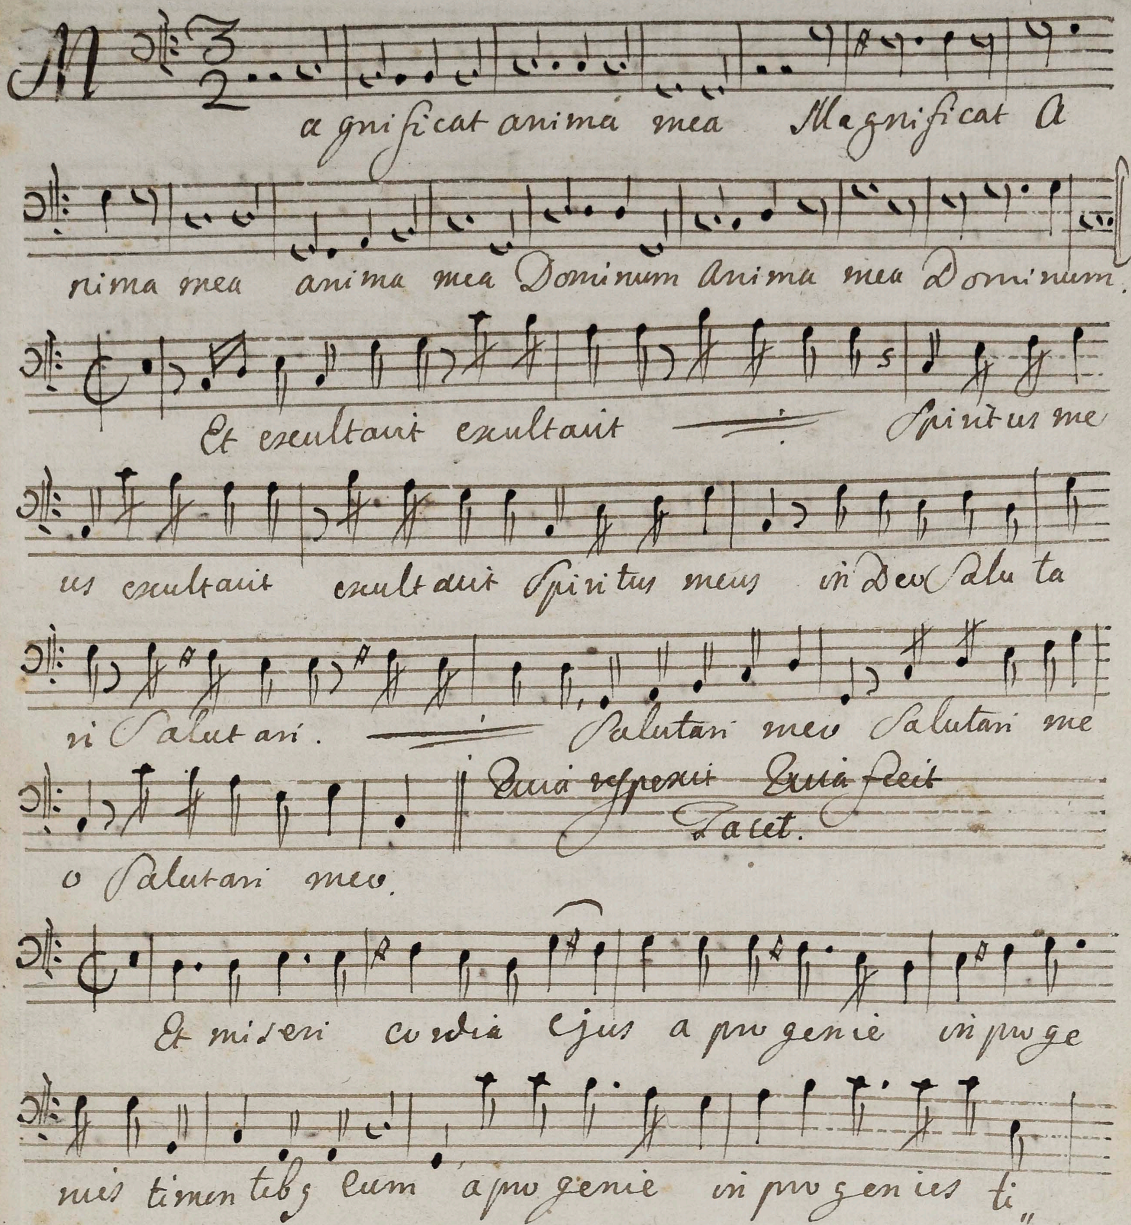 M 3 2
a gnificat anima mea Magnificat A
nima mea anima mea Dominum Anima mea Dominum.
Et exultavit exultavit Spiritus me
us exultavit exultavit Spiritus meus in Deo Saluta
ri Salutari. Salutari meo Salutari me
Quia respexit Quia fecit
Tacet.
o Salutari meo.
Et miseri cordia ejus a progenie in proge
nies timentibg eum a progenie in progenies ti„